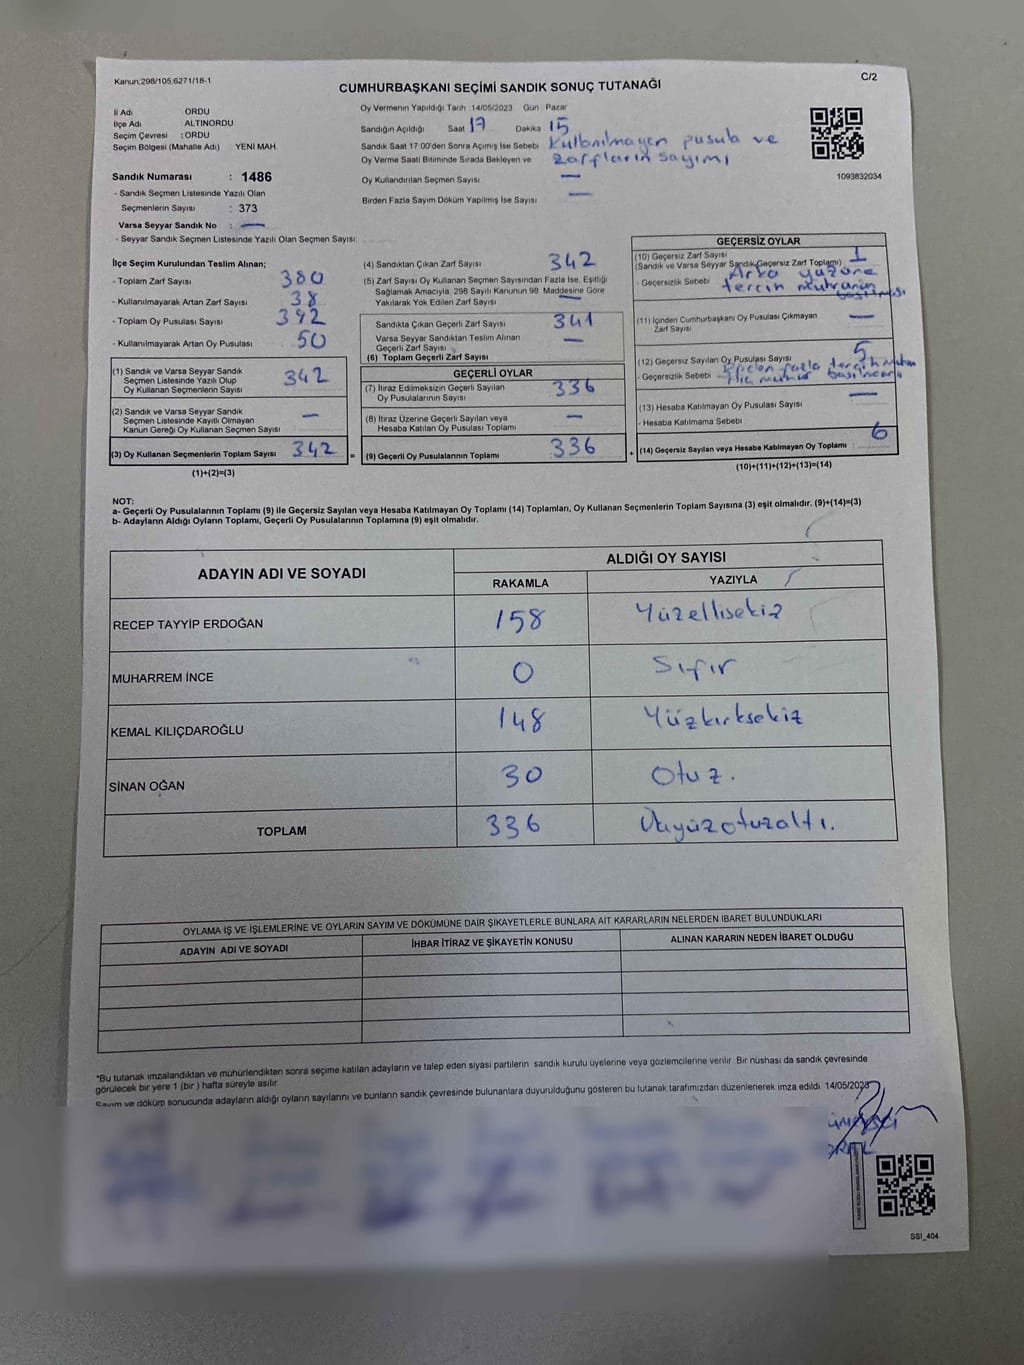 Kanun:298/105;6271/18-1
C/2
CUMHURBAŞKANI SEÇİMİ SANDIK SONUÇ TUTANAĞI
İl Adı ORDU
İlçe Adı ALTINORDU
Seçim Çevresi : ORDU
Seçim Bölgesi (Mahalle Adı) : YENİ MAH.
Sandık Numarası : 1486
- Sandık Seçmen Listesinde Yazılı Olan
Seçmenlerin Sayısı : 373
Varsa Seyyar Sandık No : —
- Seyyar Sandık Seçmen Listesinde Yazılı Olan Seçmen Sayısı:
Oy Vermenin Yapıldığı Tarih : 14/05/2023 Gün : Pazar
Sandığın Açıldığı Saat 17 Dakika : 15
Sandık Saat 17:00'den Sonra Açılmış İse Sebebi Kullanılmayan pusula ve
Oy Verme Saati Bitiminde Sırada Bekleyen ve zarfların sayımı
Oy Kullandırılan Seçmen Sayısı —
Birden Fazla Sayım Döküm Yapılmış İse Sayısı —
1093832034
İlçe Seçim Kurulundan Teslim Alınan;
- Toplam Zarf Sayısı 380
- Kullanılmayarak Artan Zarf Sayısı 38
- Toplam Oy Pusulası Sayısı 392
- Kullanılmayarak Artan Oy Pusulası 50
(1) Sandık ve Varsa Seyyar Sandık
Seçmen Listesinde Yazılı Olup
Oy Kullanan Seçmenlerin Sayısı 342
(2) Sandık ve Varsa Seyyar Sandık
Seçmen Listesinde Kayıtlı Olmayan
Kanun Gereği Oy Kullanan Seçmen Sayısı —
(3) Oy Kullanan Seçmenlerin Toplam Sayısı 342 =
(1)+(2)=(3)
(4) Sandıktan Çıkan Zarf Sayısı 342
(5) Zarf Sayısı Oy Kullanan Seçmen Sayısından Fazla İse, Eşitliği
Sağlamak Amacıyla, 298 Sayılı Kanunun 98. Maddesine Göre
Yakılarak Yok Edilen Zarf Sayısı —
Sandıkta Çıkan Geçerli Zarf Sayısı 341
Varsa Seyyar Sandıktan Teslim Alınan
Geçerli Zarf Sayısı —
(6) Toplam Geçerli Zarf Sayısı
GEÇERLİ OYLAR
(7) İtiraz Edilmeksizin Geçerli Sayılan
Oy Pusulalarının Sayısı 336
(8) İtiraz Üzerine Geçerli Sayılan veya
Hesaba Katılan Oy Pusulası Toplamı —
(9) Geçerli Oy Pusulalarının Toplamı 336 +
GEÇERSİZ OYLAR
(10) Geçersiz Zarf Sayısı 1
(Sandık ve Varsa Seyyar Sandık Geçersiz Zarf Toplamı)
- Geçersizlik Sebebi Arka yüzüne
tercih mührünün
basılması
(11) İçinden Cumhurbaşkanı Oy Pusulası Çıkmayan
Zarf Sayısı —
(12) Geçersiz Sayılan Oy Pusulası Sayısı 5
- Geçersizlik Sebebi Birden fazla
(13) Hesaba Katılmayan Oy Pusulası Sayısı —
- Hesaba Katılmama Sebebi
(14) Geçersiz Sayılan veya Hesaba Katılmayan Oy Toplamı 6
(10)+(11)+(12)+(13)=(14)
NOT:
a- Geçerli Oy Pusulalarının Toplamı (9) ile Geçersiz Sayılan veya Hesaba Katılmayan Oy Toplamı (14) Toplamları, Oy Kullanan Seçmenlerin Toplam Sayısına (3) eşit olmalıdır. (9)+(14)=(3)
b- Adayların Aldığı Oyların Toplamı, Geçerli Oy Pusulalarının Toplamına (9) eşit olmalıdır.
ADAYIN ADI VE SOYADI ALDIĞI OY SAYISI
RAKAMLA YAZIYLA
RECEP TAYYİP ERDOĞAN 158 Yüzellisekiz
MUHARREM İNCE 0 Sıfır
KEMAL KILIÇDAROĞLU 148 Yüzkırksekiz
SİNAN OĞAN 30 Otuz.
TOPLAM 336 Üçyüzotuzaltı.
OYLAMA İŞ VE İŞLEMLERİNE VE OYLARIN SAYIM VE DÖKÜMÜNE DAİR ŞİKAYETLERLE BUNLARA AİT KARARLARIN NELERDEN İBARET BULUNDUKLARI
ADAYIN ADI VE SOYADI İHBAR İTİRAZ VE ŞİKAYETİN KONUSU ALINAN KARARIN NEDEN İBARET OLDUĞU
*Bu tutanak imzalandıktan ve mühürlendikten sonra seçime katılan adayların ve talep eden siyasi partilerin sandık kurulu üyelerine veya gözlemcilerine verilir. Bir nüshası da sandık çevresinde
görülecek bir yere 1 (bir) hafta süreyle asılır.
Sayım ve döküm sonucunda adayların aldığı oyların sayılarını ve bunların sandık çevresinde bulunanlara duyurulduğunu gösteren bu tutanak tarafımızdan düzenlenerek imza edildi. 14/05/2023
SSI_404